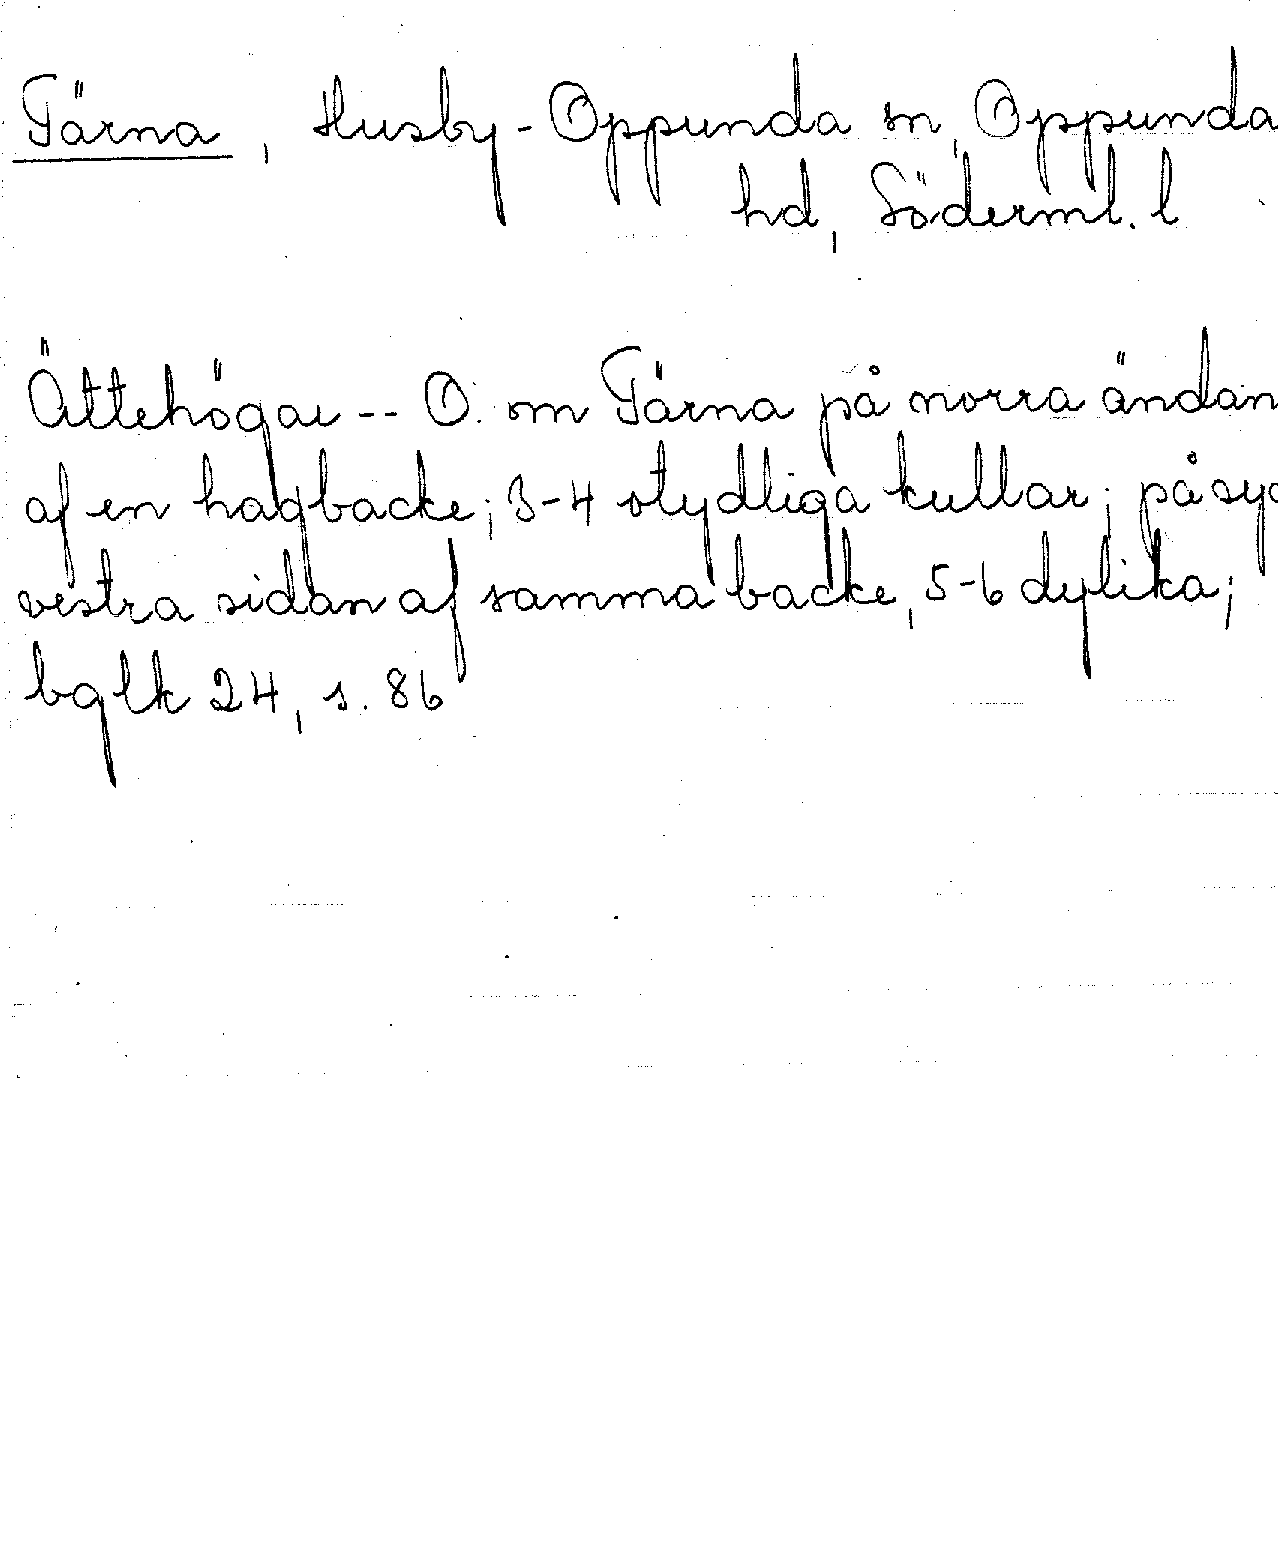 Tärna, Husby-Oppunda sn, Oppunda
hd, Söderml. l
Ättehögar -- O. om Tärna på norra ändan
af en hagbacke; 3-4 otydliga kullar; på syd
vestra sidan af samma backe, 5-6 dylika;
bglk 24, s. 86